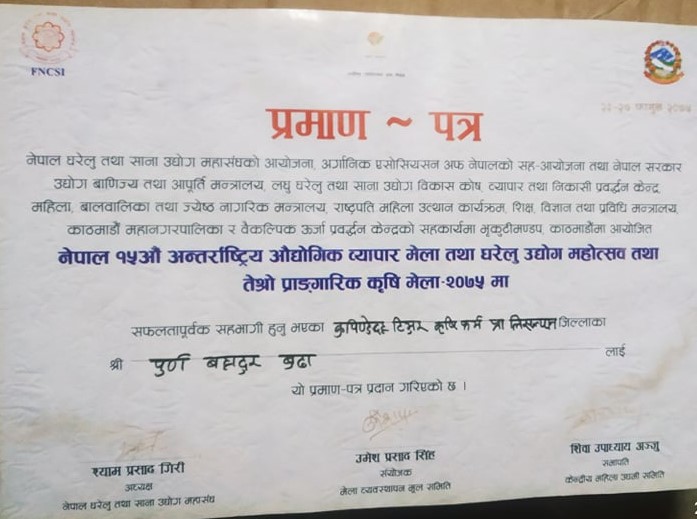 FNCSI
प्रमाण ~ पत्र
नेपाल घरेलु तथा साना उद्योग महासंघको आयोजना, अर्गानिक एसोसियसन अफ नेपालको सह-आयोजना तथा नेपाल सरकार
उद्योग बाणिज्य तथा आपूर्ति मन्त्रालय, लघु घरेलु तथा साना उद्योग विकास कोष, व्यापार तथा निकासी प्रवर्द्धन केन्द्र,
महिला, बालवालिका तथा ज्येष्ठ नागरिक मन्त्रालय, राष्ट्रपति महिला उत्थान कार्यक्रम, शिक्षा, विज्ञान तथा प्रविधि मन्त्रालय,
काठमाडौं महानगरपालिका र वैकल्पिक ऊर्जा प्रवर्द्धन केन्द्रको सहकार्यमा भृकुटीमण्डप, काठमाडौंमा आयोजित
नेपाल १५औं अन्तर्राष्ट्रिय औद्योगिक व्यापार मेला तथा घरेलु उद्योग महोत्सव तथा
तेश्रो प्राङ्गारिक कृषि मेला-२०७५ मा
सफलतापूर्वक सहभागी हुनु भएका कृषि फर्म जिल्लाका
श्री पुर्ण बहादुर बुढा लाई
यो प्रमाण-पत्र प्रदान गरिएको छ ।
श्याम प्रसाद गिरी
अध्यक्ष
नेपाल घरेलु तथा साना उद्योग महासंघ
उमेश प्रसाद सिंह
संयोजक
मेला व्यवस्थापन मुल समिति
शिवा उपाध्याय अञ्जु
सभापति
केन्द्रीय महिला उद्यमी समिति